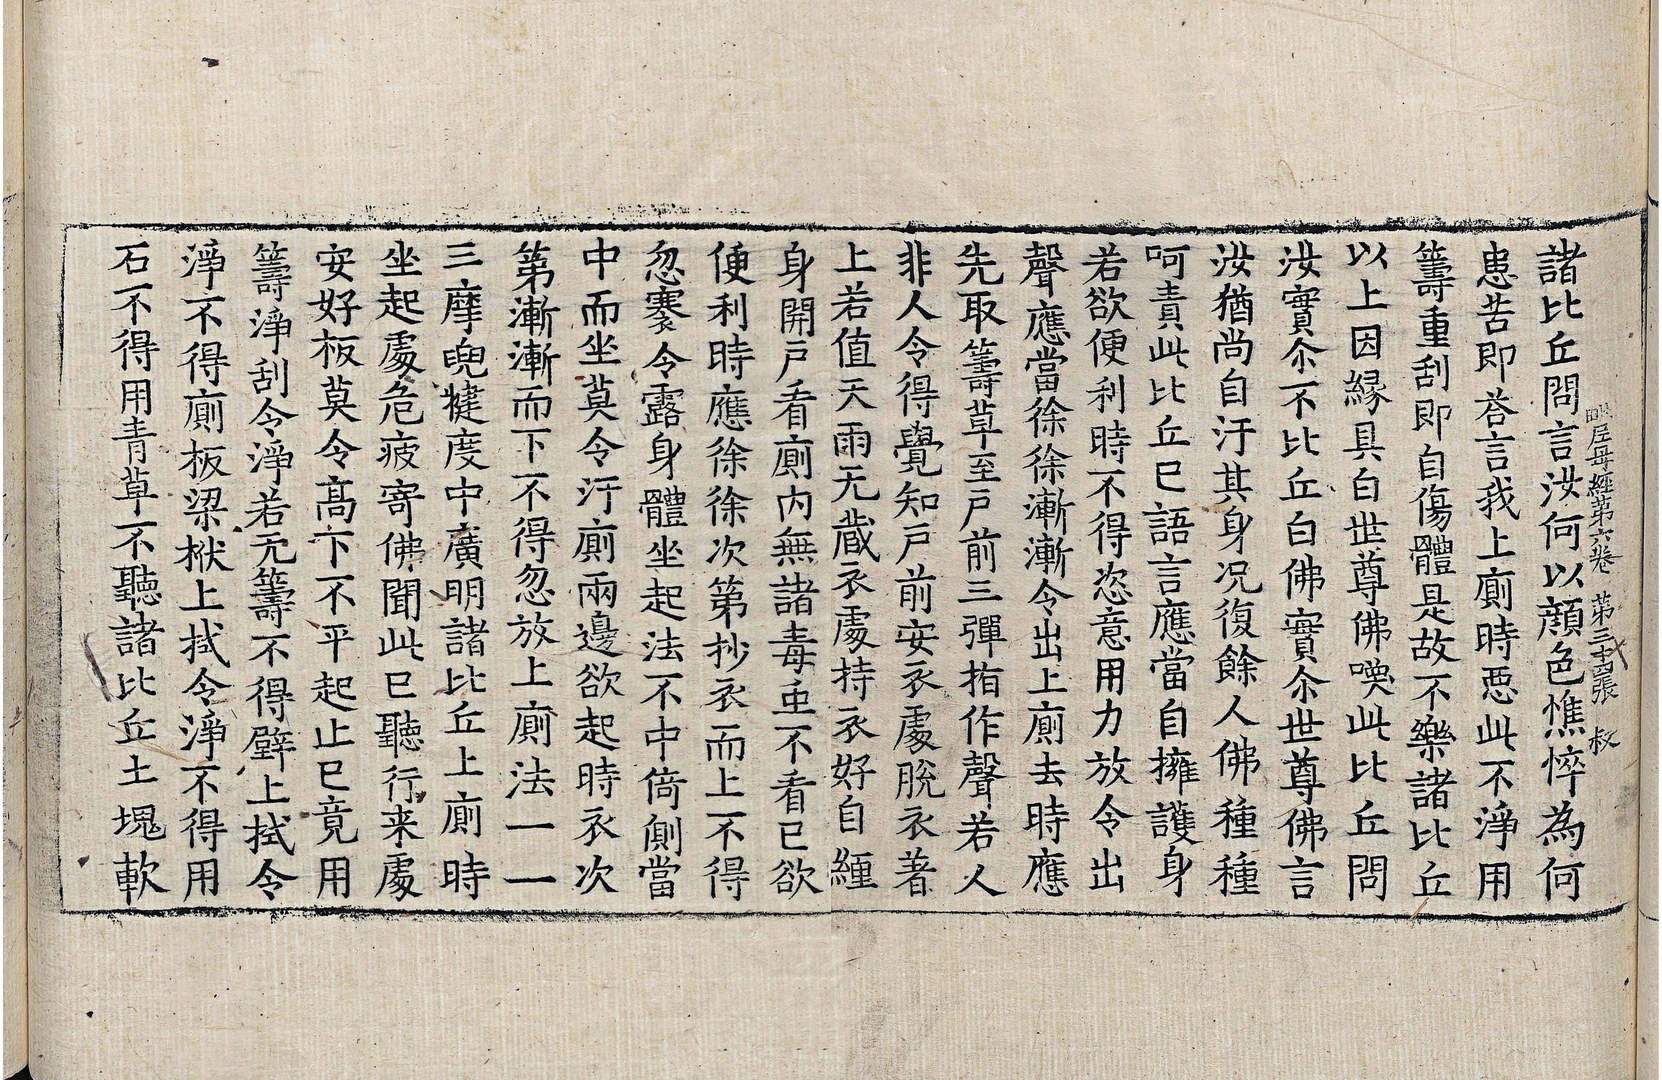 尼母經第六卷 第三十張 叔
諸比丘問言汝何以顔色憔悴為何
患苦即荅言我上廁時惡此不淨用
籌重刮即自傷體是故不樂諸比丘
以上因縁具白世尊佛喚此比丘問
汝實尒不比丘白佛實尒世尊佛言
汝猶尚自汙其身況復餘人佛種種
呵責此比丘已語言應當自擁護身
若欲便利時不得恣意用力放令出
聲應當徐徐漸漸令出上廁去時應
先取籌草至戶前三彈指作聲若人
非人令得覺知戶前安衣處脫衣著
上若值天雨无蔵衣處持衣好自纏
身開戶看廁內無諸毒虫不看已欲
便利時應徐徐次第抄衣而上不得
忽褰令露身體坐起法不中倚側當
中而坐莫令汙廁兩邊欲起時衣次
第漸漸而下不得忽放上廁法一一
三摩兜揵度中廣明諸比丘上廁時
坐起處危疲寄佛聞此已聽行来處
安好板莫令髙下不平起止已竟用
籌淨刮令淨若无籌不得壁上拭令
淨不得廁板梁栿上拭令淨不得用
石不得用青草不聽諸比丘土塊軟